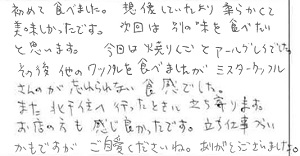 初めて食べました。想像していたより柔らかくて
美味しかったです。次回は別の味を食べたい
と思います。今回は焼りんごとアールグレイでした。
その後他のワッフルを食べましたがミスターワッフル
さんのが忘れられない食感でした。
また北千住へ行ったときに立ち寄ります。
お店の方も感じ良かったです。立ち仕事づらい
かもですがご自愛くださいね。ありがとうございました。